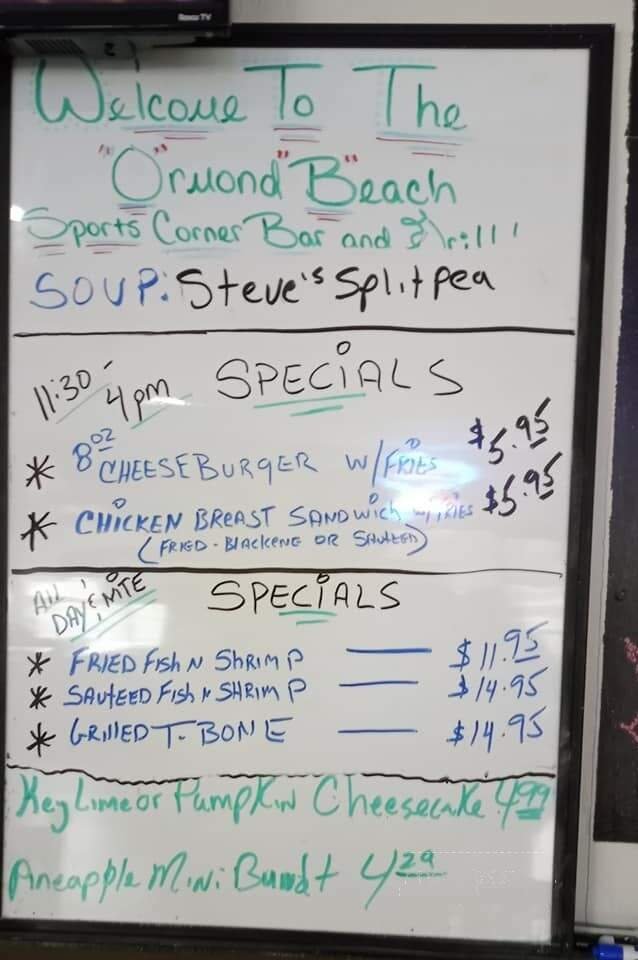 Roku TV
Welcome To The
"Ormond" Beach"
Sports Corner Bar and Grill!
SOUP: Steve's Split pea
11:30-4pm SPECIALS
* 8oz CHEESEBURGER W/FRIES $5.95
* CHICKEN BREAST SANDWICH W/FRIES $5.95
(FRIED - BLACKENE OR SAUTEED)
All DAY & NITE SPECIALS
* FRIED FISH N SHRIMP — $11.95
* SAUTEED FISH N SHRIMP — $14.95
* GRILLED T-BONE — $14.95
Key Lime or Pumpkin Cheesecake 4.99
Pineapple Mini Bundt 4.29